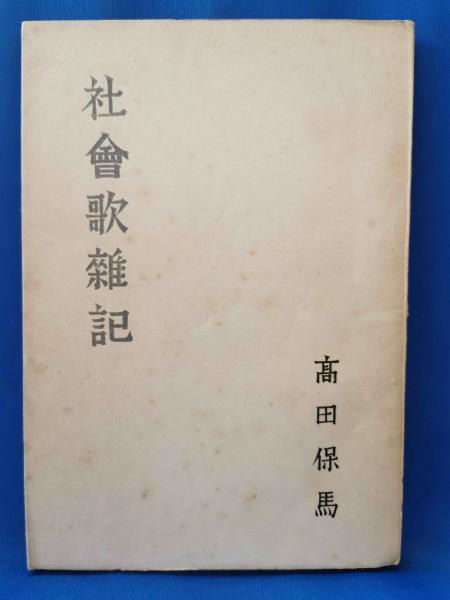 社會歌雜記
髙田保馬